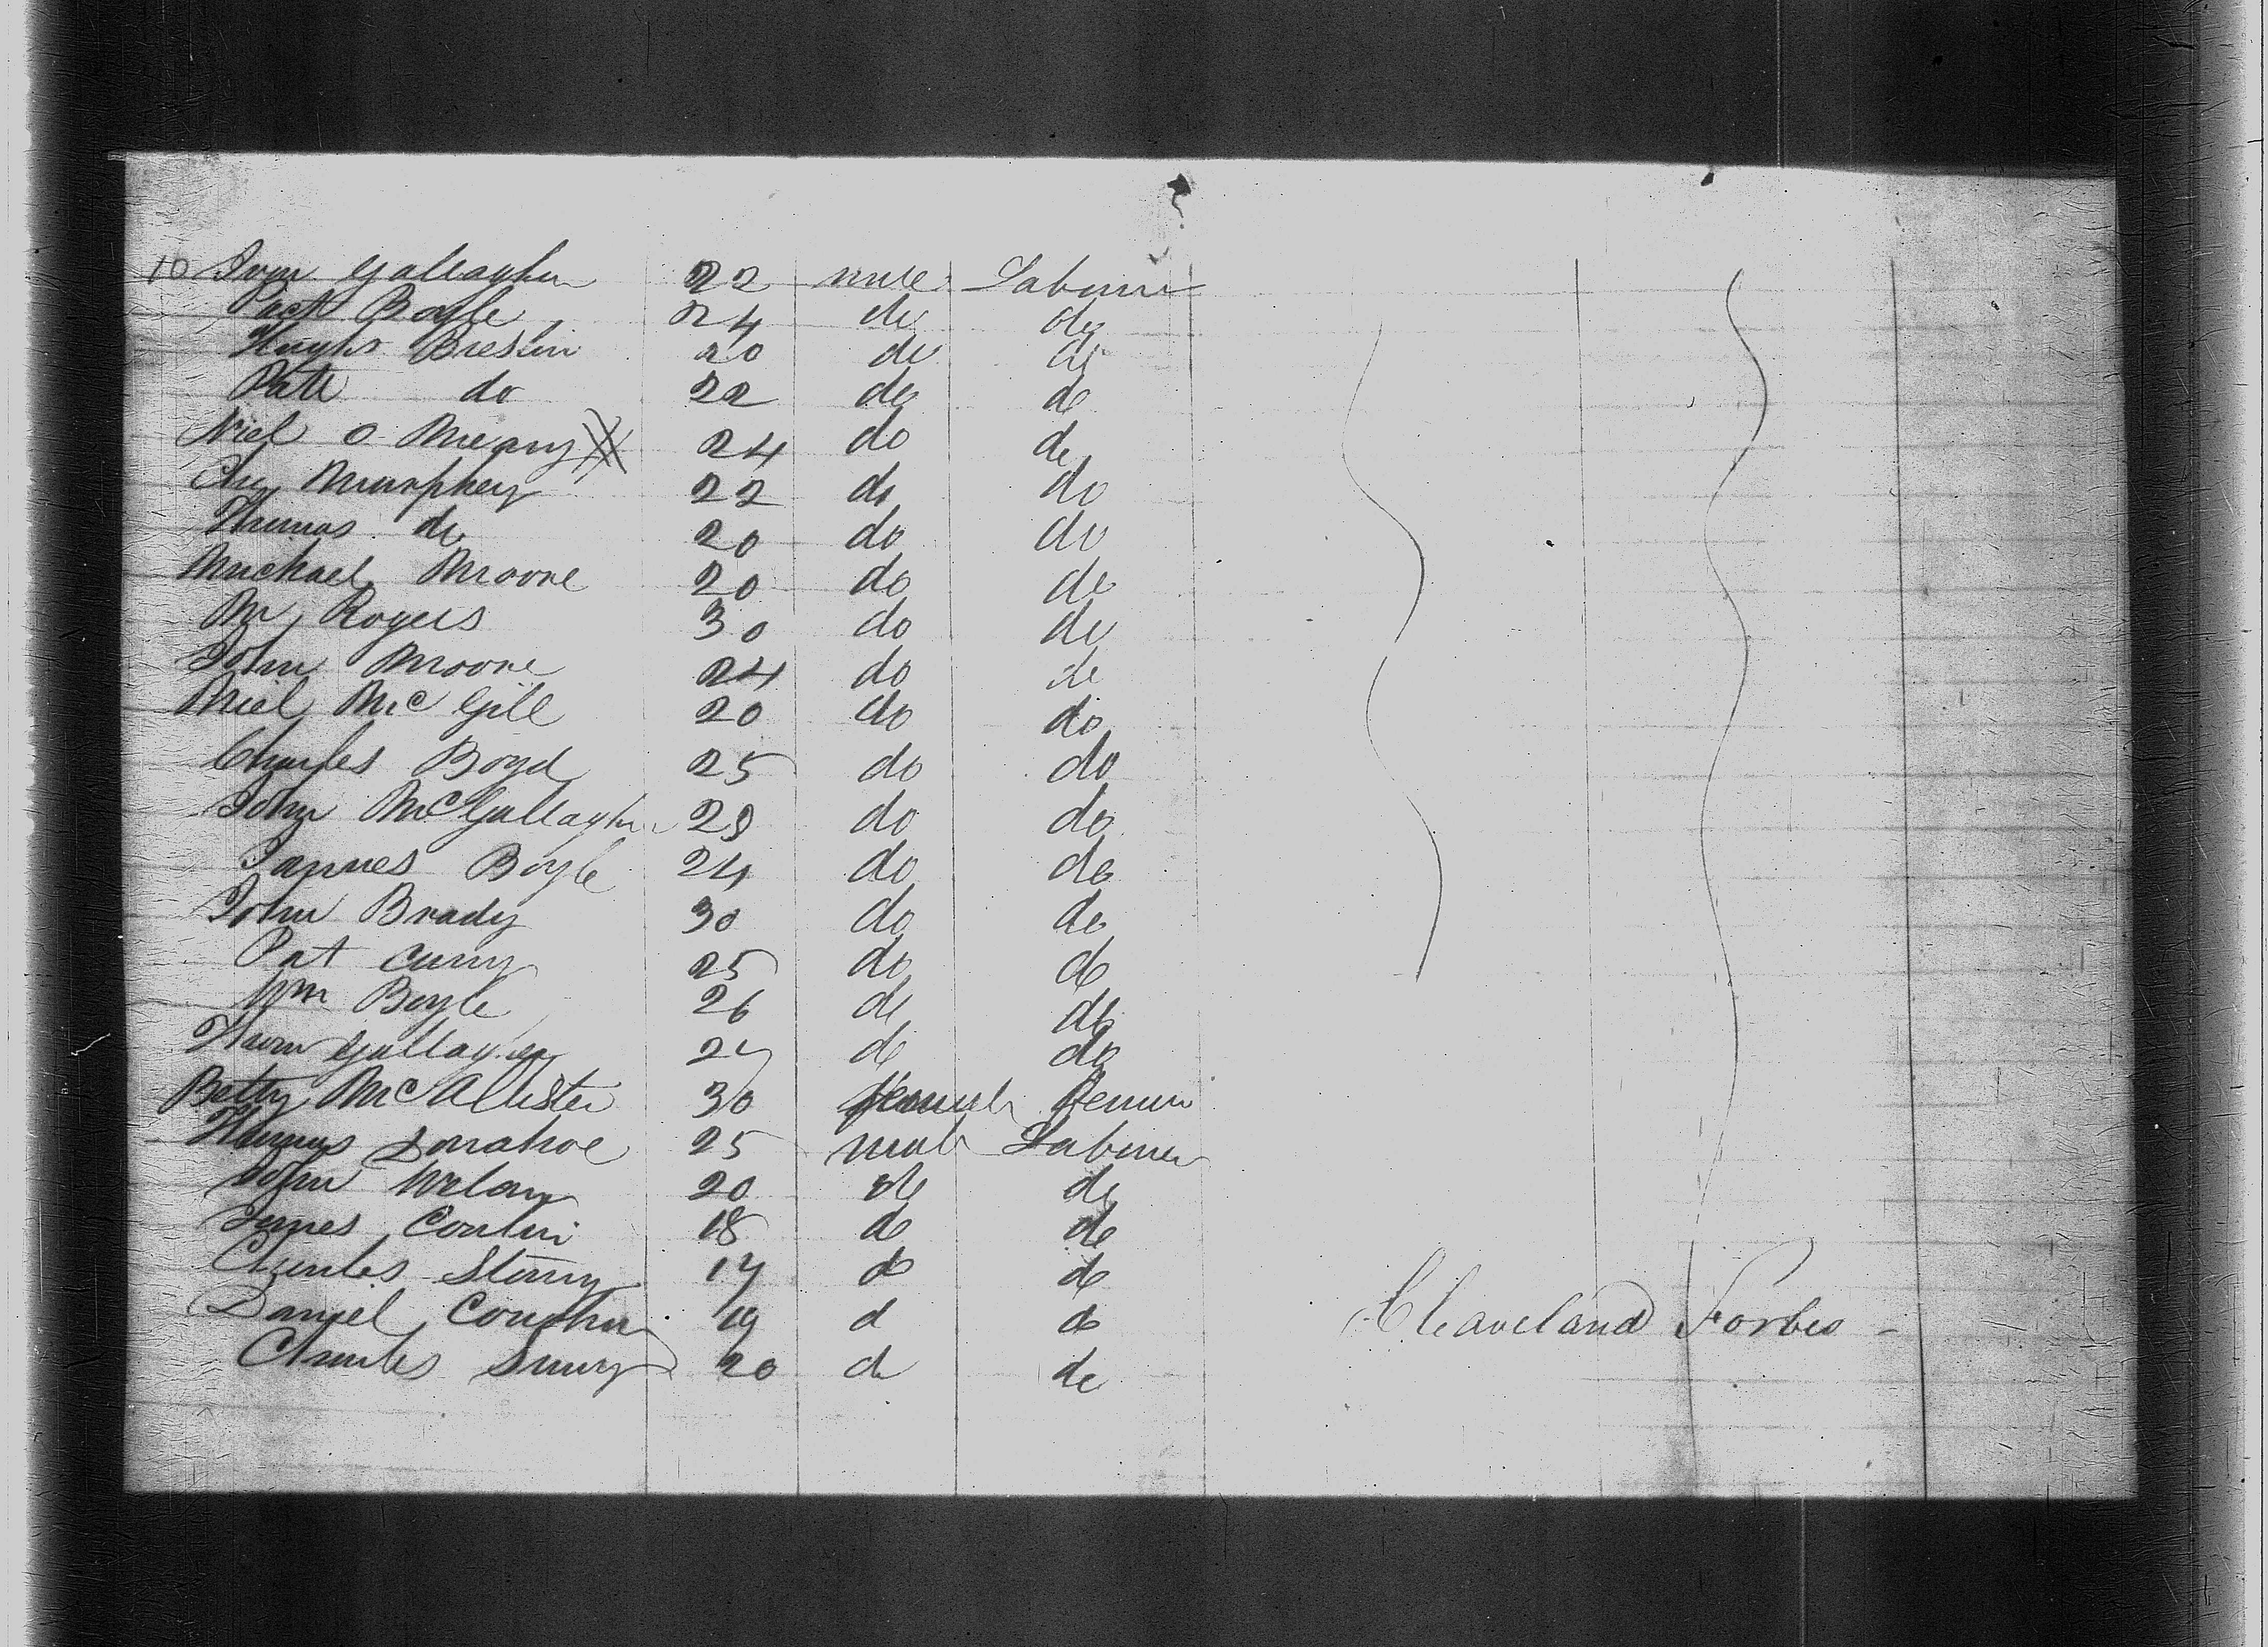 10 Gallagher 22 male Laborer
Pat Boyle 24 do do
Hugh Breslin 20 do do
Patt do 22 do do
Niel O 24 do do
Murphey 22 do do
Thomas do 20 do do
Michael Moore 20 do do
Rogers 30 do do
John Moore 24 do do
Niel McGill 20 do do
Charles Boyd 25 do do
John McGallagher do do
James Boyle 24 do do
John Brady 30 do do
Pat Curry 25 do do
Wm Boyle 26 do do
Gallagher do do
Betty McAllister 30 female
Thomas Donahoe 25 male Laborer
John 20 do do
James 18 do do
Charles 17 do do
Daniel 19 d do
Charles 20 do do
Cleaveland Forbes